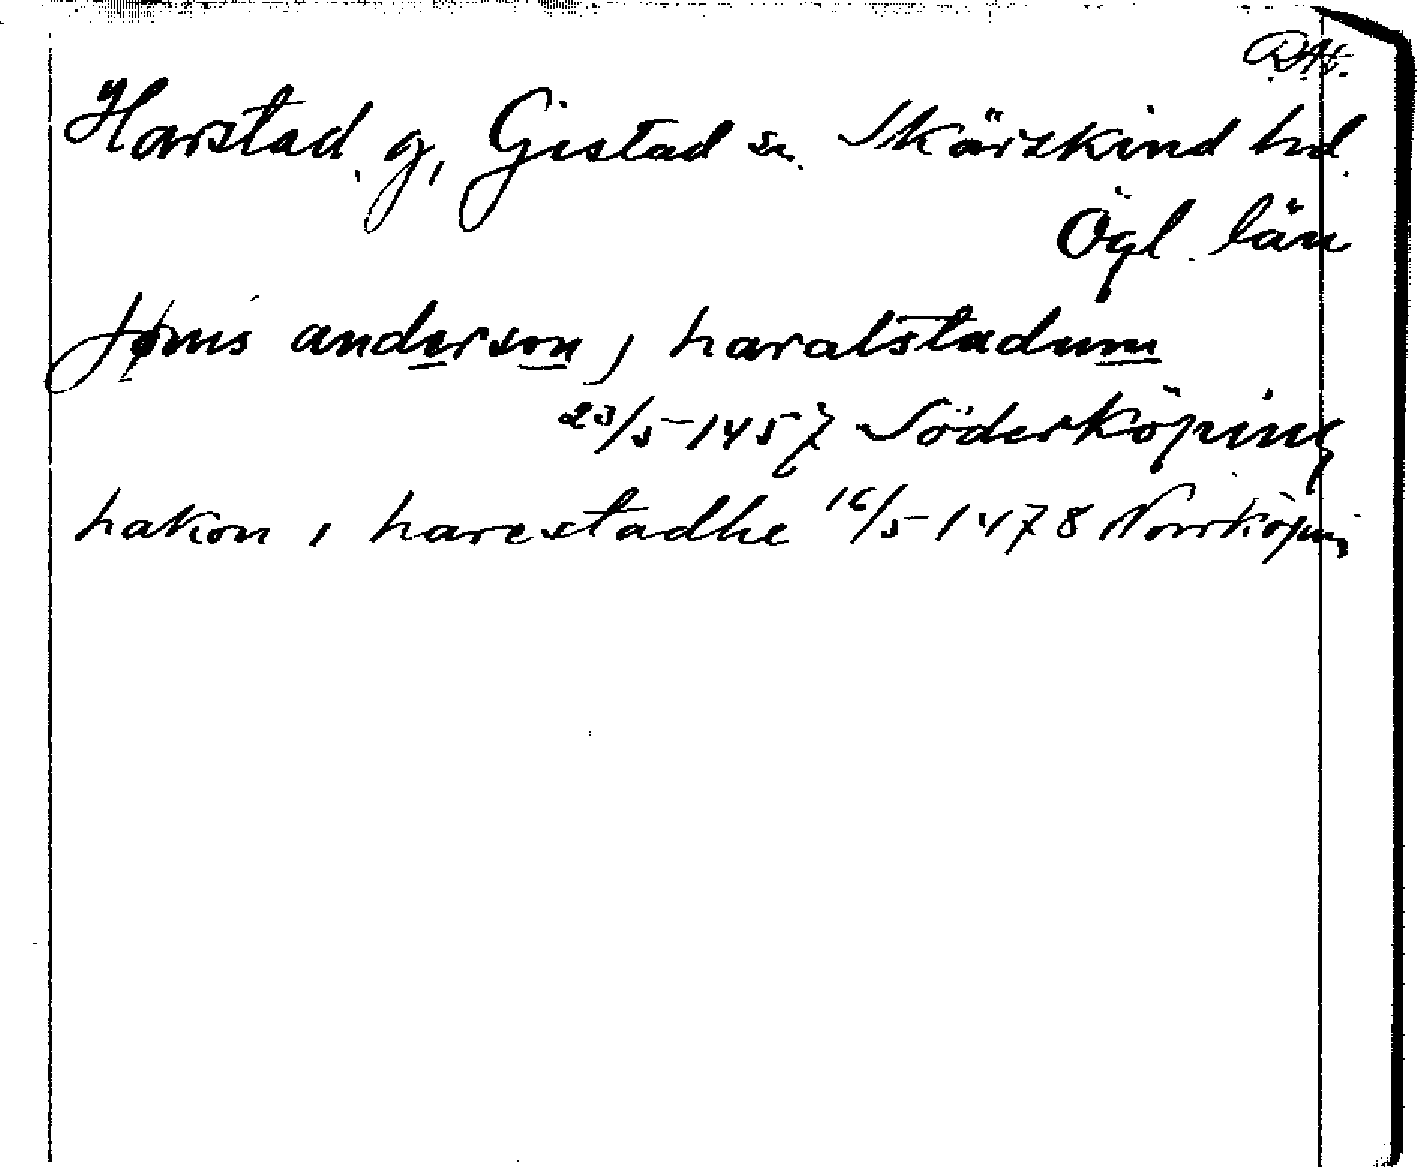 DAt.
Harstad. g, Gistad sn. Skärskind hd.
Ögl. län
Jønis anderson, haralstadum
23/5-1457 Söderköping
hakon, harestadhe 16/5-1478 Norrköping